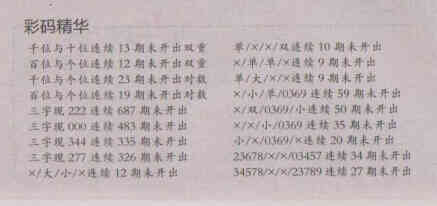 彩码精华
千位与十位连续 13 期未开出双重
百位与个位连续 12 期未开出双重
千位与十位连续 23 期未开出对数
百位与个位连续 19 期未开出对数
三字现 222 连续 687 期未开出
三字现 000 连续 483 期未开出
三字现 344 连续 335 期未开出
三字现 277 连续 326 期未开出
×/大/小/×连续 12 期未开出
单/×/×/双连续 10 期未开出
×/单/单/×连续 9 期未开出
单/大/×/×连续 9 期未开出
×/小/单/0369 连续 59 期未开出
×/双/0369/小连续 50 期未开出
×/×/小/0369 连续 35 期未开出
小/×/0369/×连续 20 期未开出
23678/×/×/03457 连续 34 期未开出
34578/×/×/23789 连续 27 期未开出